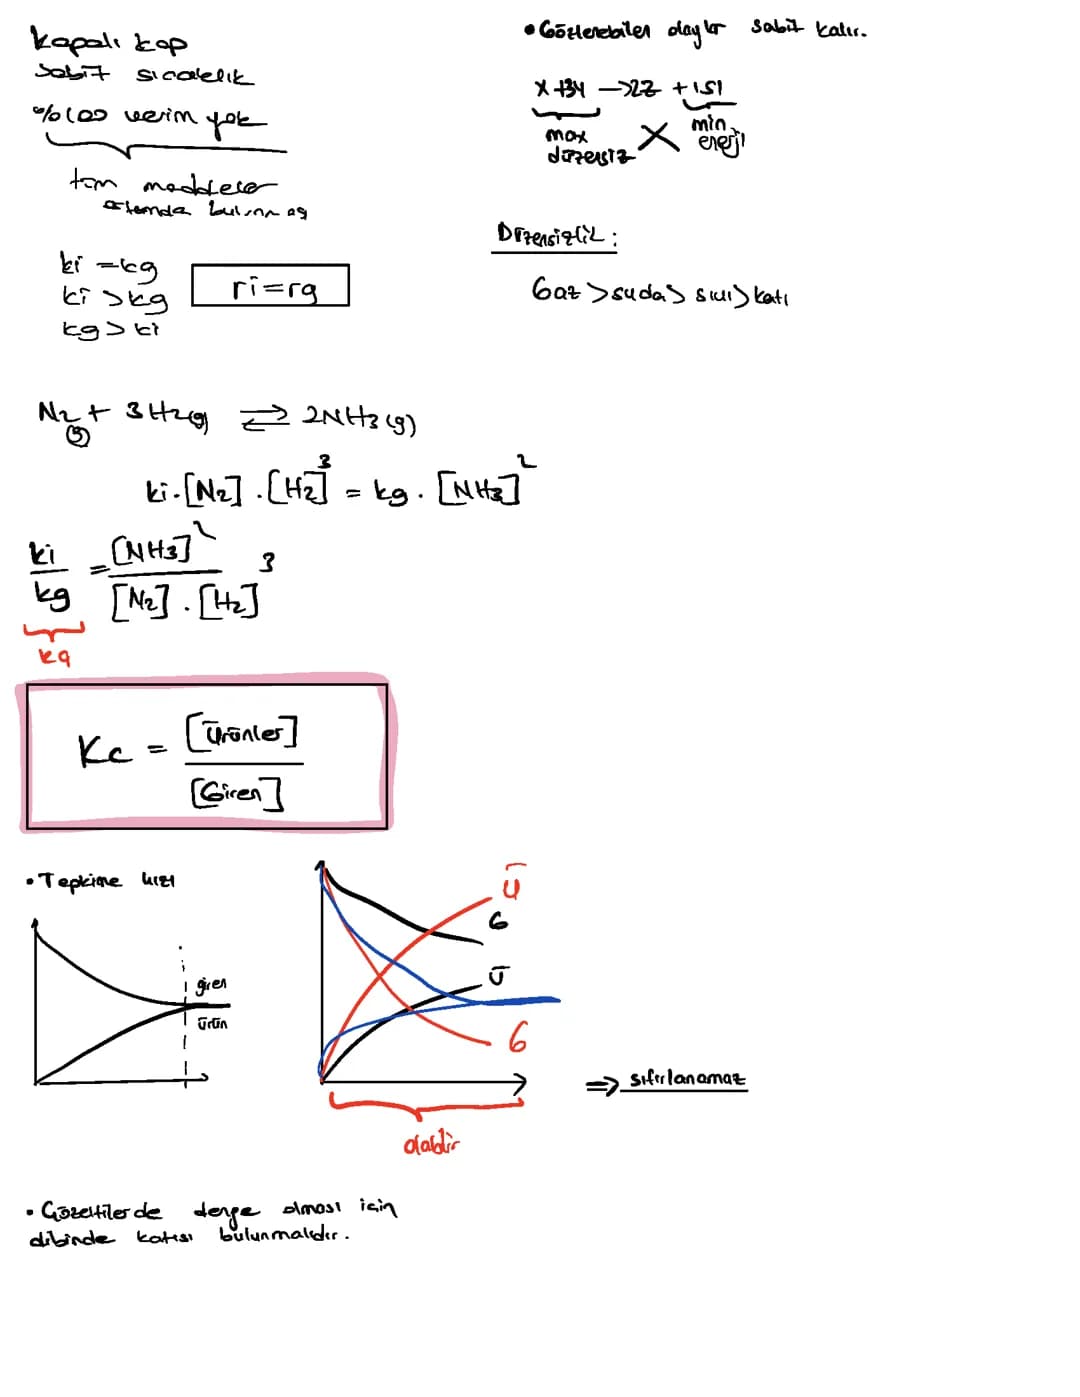 Kapalı kap
Sabit sıcaklık
%100 verim yok
tüm maddeler
ortamda
ki = kg
ki > kg
kg > ki
ri = rg
• Gözlenebilen olaylar sabit kalır.
X + 3Y → 2Z + ısı
max düzensiz
min enerji
Düzensizlik:
Gaz > suda > sıvı > katı
N2(g) + 3H2(g) ⇌ 2NH3(g)
ki . [N2] . [H2]^3 = kg . [NH3]^2
ki/kg = [NH3]^2 / [N2] . [H2]^3
kg
Kc = [Ürünler] / [Giren]
• Tepkime hızı
giren
ürün
Ü
G
Ü
G
olabilir
⇒ sıfırlanamaz
• Çözeltilerde denge olması için
dibinde katısı bulunmalıdır.